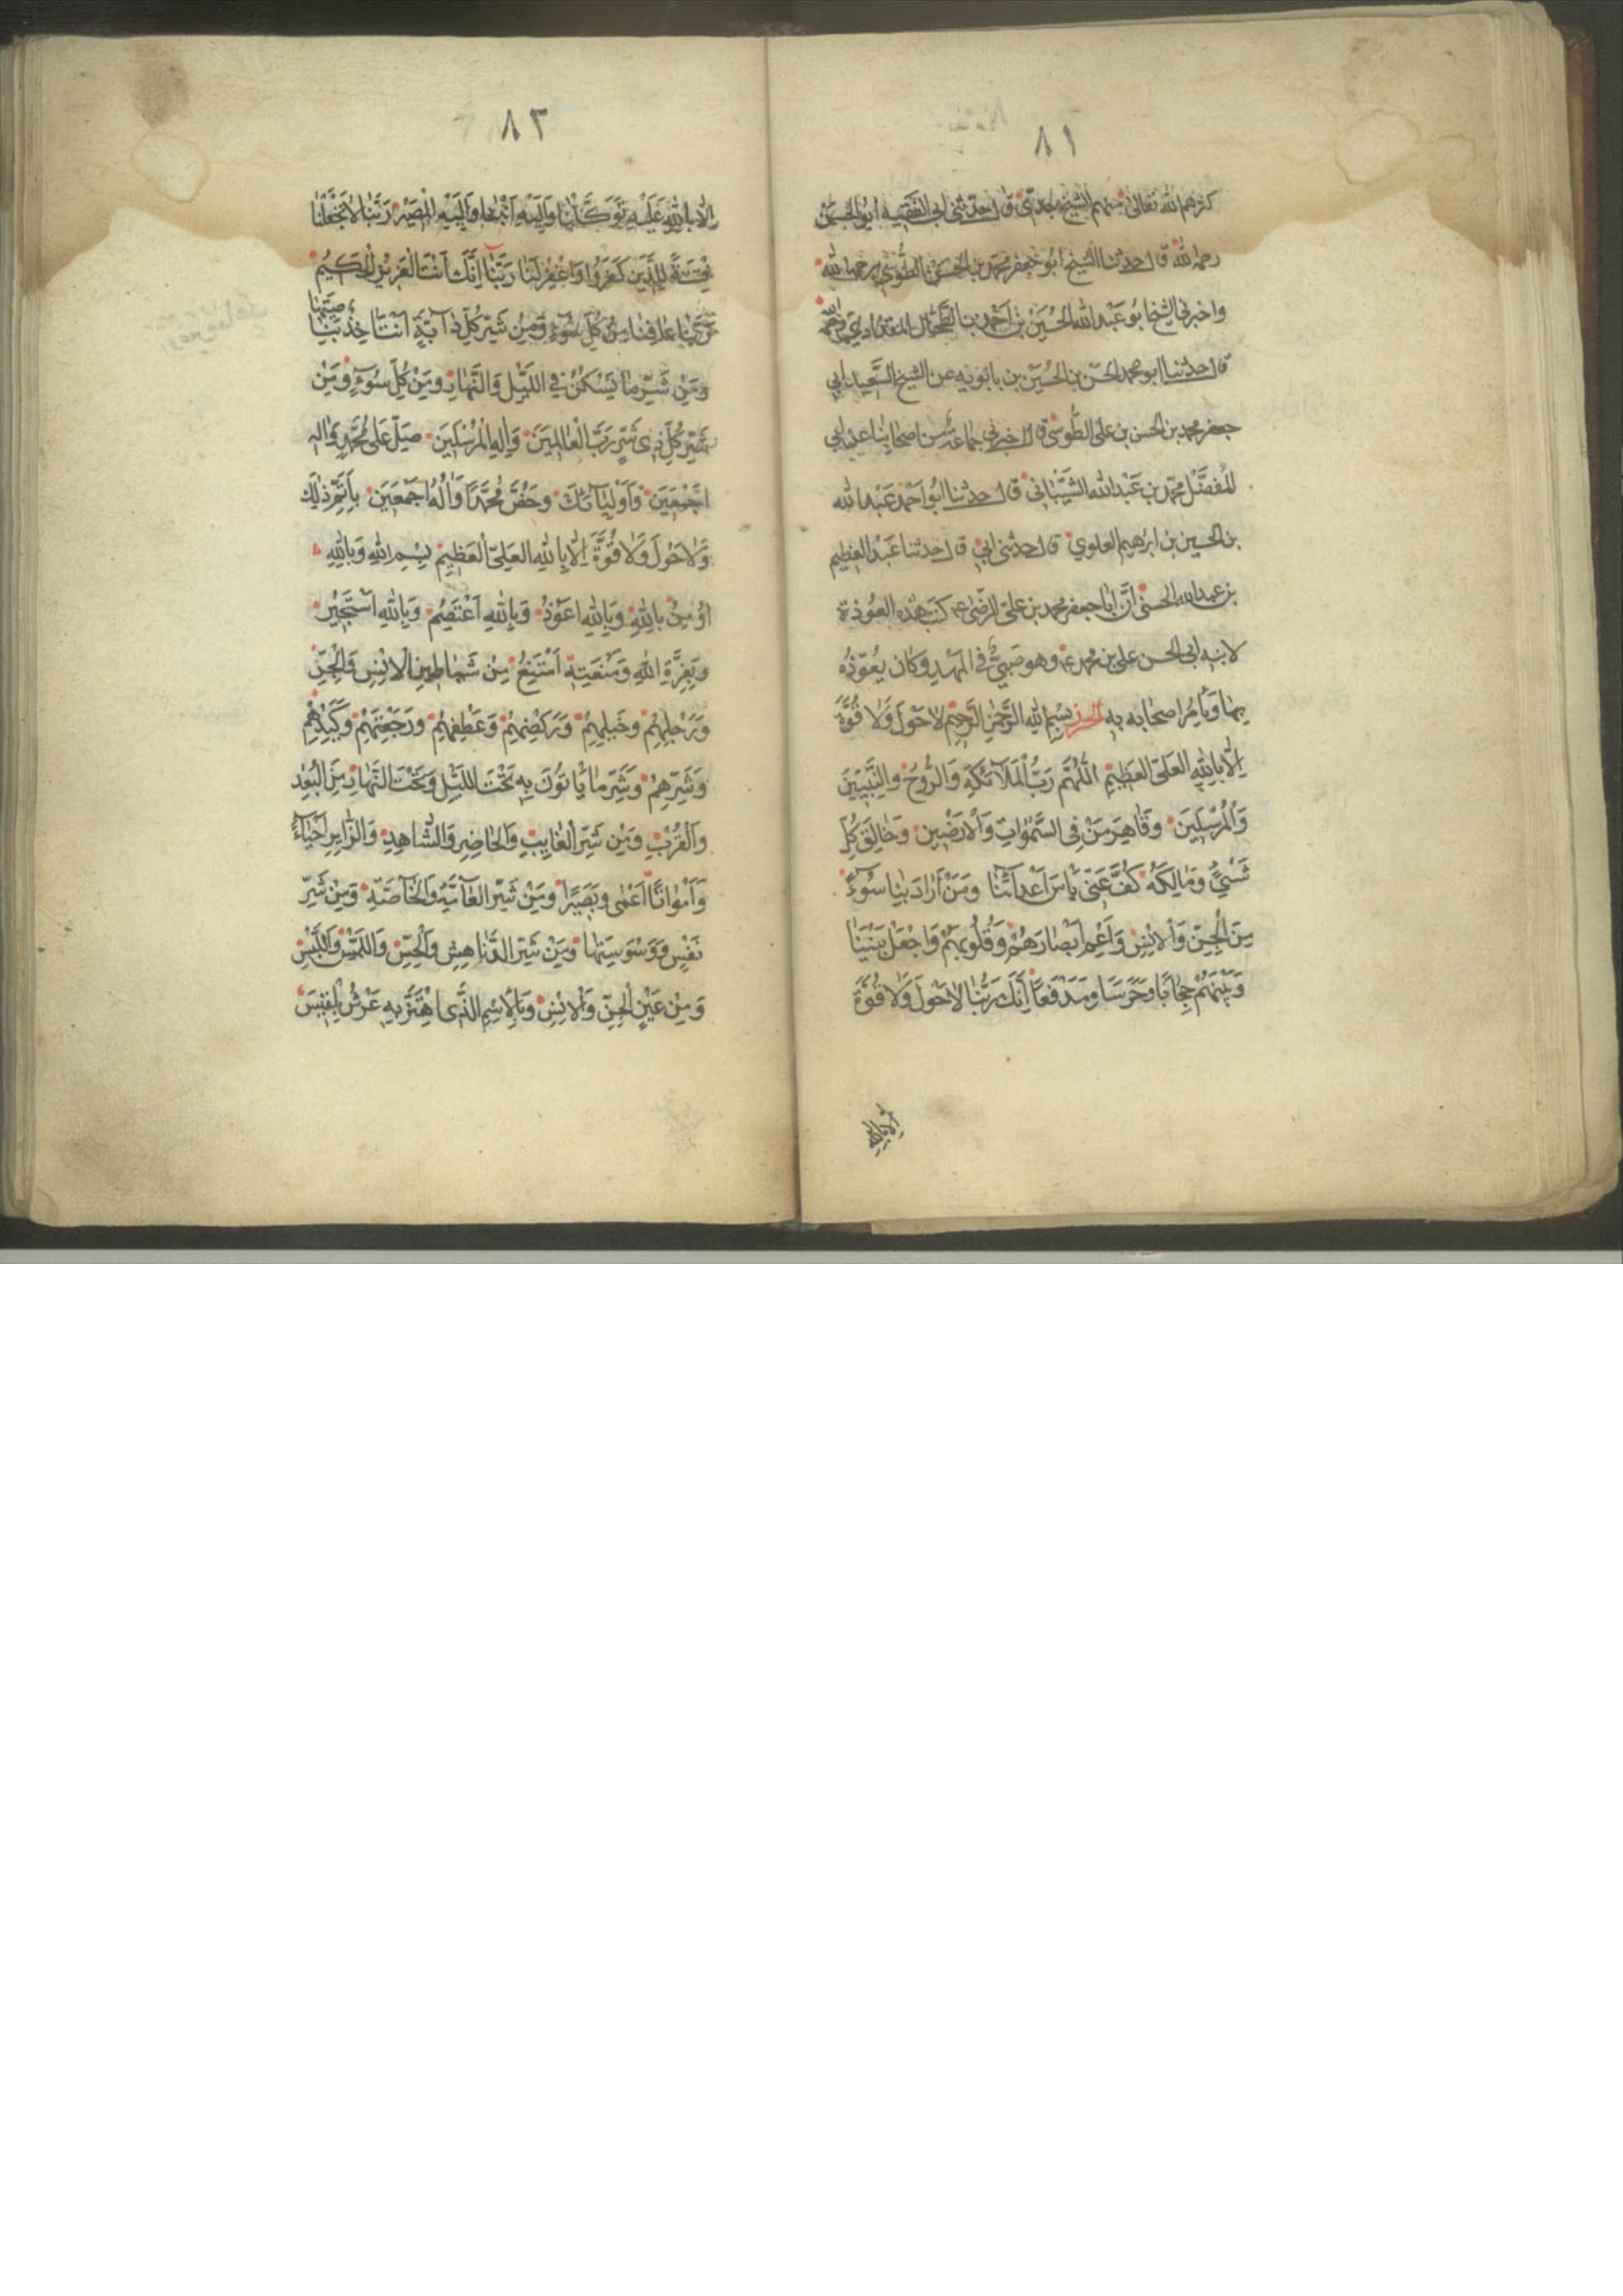 ٨١
كثرهم الله تعالى منهم الشيخ جدى قال حدثنى ابى الفقيه ابو الحسن
رحمه الله قال حدثنا الشيخ ابو جعفر محمد بن الحسن الطوسى رحمه الله
واخبرنى الشيخ ابو عبد الله الحسين بن احمد بن الطحال المقدادى
قال حدثنا ابو محمد الحسن بن الحسين بن بابويه عن الشيخ السعيد ابى
جعفر محمد بن الحسن بن على الطوسى قال اخبرنى جماعة من اصحابنا عن ابى
المفضل محمد بن عبد الله الشيبانى قال حدثنا ابو احمد عبد الله
بن الحسين بن ابراهيم العلوى قال حدثنى ابى قال حدثنا عبد العظيم
بن عبد الله الحسنى أن ابا جعفر محمد بن على الرضى ع كتب هذه العوذة
لابنه ابى الحسن على بن محمد ع وهو صبى فى المهد وكان يعوذه
بها ويأمر اصحابه به الحرز بسم الله الرحمن الرحيم لا حول ولا قوة
إلا بالله العلى العظيم اللهم رب الملآئكة والروح والنبيين
والمرسلين وقاهر من فى السموات والارضين وخالق كل
شىء ومالكه كف عنى بأس اعدآئنا ومن أراد بنا سوءا
من الجن والانس واعم ابصارهم وقلوبهم واجعل بيننا
وبينهم حجابا وحرسا ومدفعا إنك ربنا لا حول ولا قوة
إلا بالله
٨٢
إلا بالله عليه توكلنا واليه انبنا واليه المصير ربنا لا تجعلنا
فتنة للذين كفروا واغفر لنا ربنا إنك أنت العزيز الحكيم
ربنا عافنا من كل سوء ومن شر كل دآبة أنت آخذ بناصيتها
ومن شر ما يسكن فى الليل والنهار ومن كل سوء ومن
شر كل ذى شر رب العالمين وإله المرسلين صل على محمد وآله
اجمعين وأوليآئك وخص محمدا وآله اجمعين بأتم ذلك
ولا حول ولا قوة إلا بالله العلى العظيم بسم الله وبالله
أومن بالله وبالله اعوذ وبالله أعتصم وبالله أستجير
وبعزة الله ومنعته أمتنع من شياطين الانس والجن
ورجلهم وخيلهم وركضهم وعطفهم ورجعتهم وكيدهم
وشرهم وشر ما يأتون به تحت الليل وتحت النهار من البعد
والقرب ومن شر الغايب والحاضر والشاهد والزاير احياء
وأمواتا اعمى وبصيرا ومن شر العآمة والخآصة ومن شر
نفس ووسوستها ومن شر الدناهش والحس واللمس واللبس
ومن عين الجن والانس وبالاسم الذى اهتز به عرش بلقيس